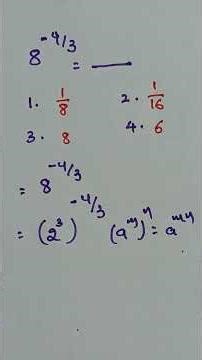 8^{-4/3} = ___
1. 1/8 2. 1/16
3. 8 4. 6
= 8^{-4/3}
= (2^3)^{-4/3} (a^m)^n = a^{mn}